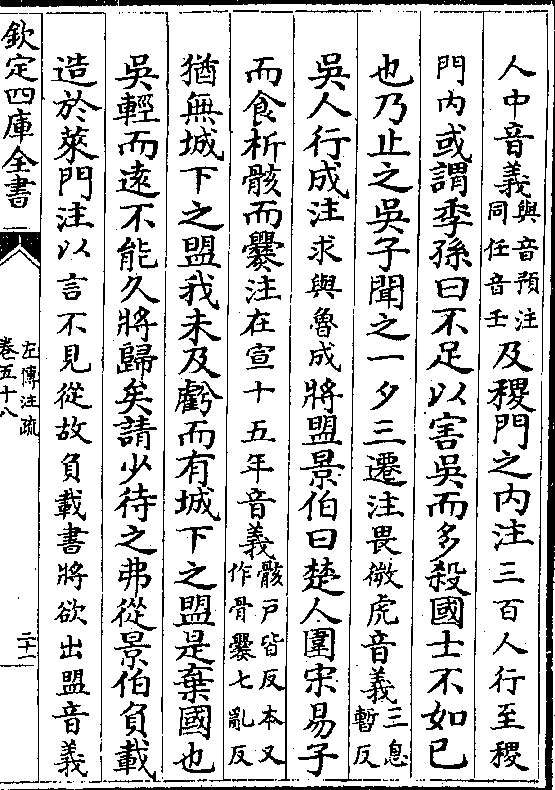 人中音義與音預注同任音壬及稷門之内注三百人行至稷
門内或謂季孫曰不足以害吳而多殺國士不如已
也乃止之吳子聞之一夕三遷注畏微虎音義三息暫反
吳人行成注求與魯成將盟景伯曰楚人圍宋易子
而食析骸而爨注在宣十五年音義骸戸皆反本又作骨爨七亂反
猶無城下之盟我未及虧而有城下之盟是棄國也
吳輕而遠不能久將歸矣請少待之弗從景伯負載
造於萊門注以言不見從故負載書將欲出盟音義
欽定四庫全書
左傳注疏
卷五十八
二十一